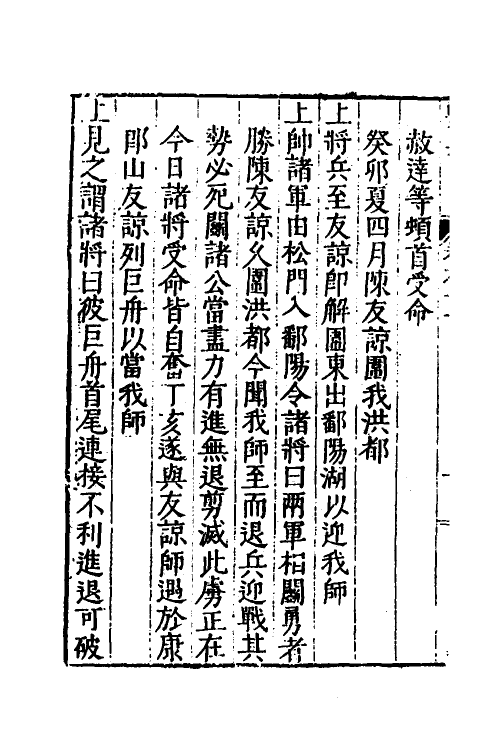 赦達等頓首受命
癸卯夏四月陳友諒圍我洪都
上將兵至友諒即解圍東出鄱陽湖以迎我師
上帥諸軍由松門入鄱陽令諸將曰兩軍相鬬勇者
勝陳友諒久圍洪都今聞我師至而退兵迎戰其
勢必死鬬諸公當盡力有進無退剪滅此虜正在
今日諸將受命皆自奮丁亥遂與友諒師遇於康
郎山友諒列巨舟以當我師
上見之謂諸將曰彼巨舟首尾連接不利進退可破